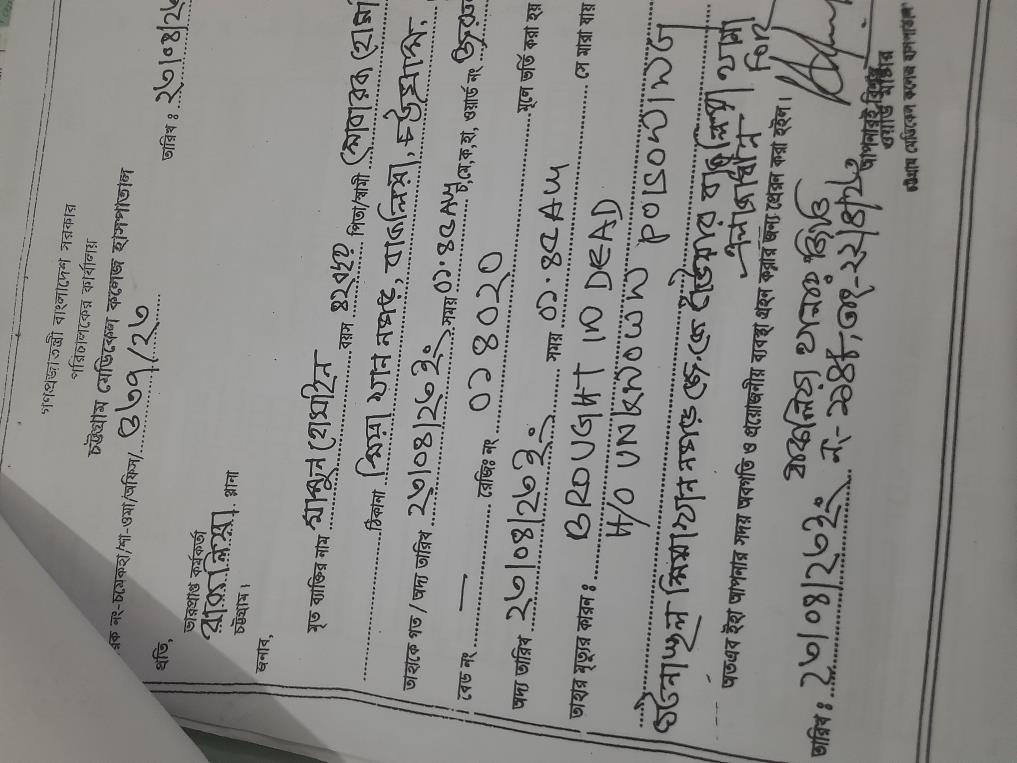 গণপ্রজাতন্ত্রী বাংলাদেশ সরকার
পরিচালকের কার্যালয়
চট্টগ্রাম মেডিকেল কলেজ হাসপাতাল
রক নং-চমেকহা/শা-ওমা/অফিস/ ৩৬৭/২৬ তারিখ : ২৬/০৪/২৬
প্রতি,
ভারপ্রাপ্ত কর্মকর্তা
বাকলিয়া থানা
চট্টগ্রাম।
জনাব,
মৃত ব্যক্তির নাম মামুন হোসাইন বয়স ৪২বছর পিতা/স্বামী মোবারক হোসা
ঠিকানা মিয়া খান নগর, বাকলিয়া, চট্টগ্রাম,
তাহাকে গত / অদ্য তারিখ ২৬/০৪/২৬ইং সময় ০১.৪৫AM চ,মে,ক,হা, ওয়ার্ড নং জরুরী
বেড নং — রেজিঃ নং ০১৪০২০ মূলে ভর্তি করা হয়
অদ্য তারিখ ২৬/০৪/২৬ইং সময় ০১.৪৫AM সে মারা যায়
তাহার মৃত্যুর কারন : BROUGHT IN DEAD
H/O UNKNOWN POISONING
ঘটনাস্থল মিয়াখান নগর
অতএব ইহা আপনার সদয় অবগতি ও প্রয়োজনীয় ব্যবস্থা গ্রহন করার জন্য প্রেরন করা হইল।
বাকলিয়া থানার জিডি
তারিখ : ২৬/০৪/২৬ইং
আপনারই বিশ্বস্ত
ওয়ার্ড মাষ্টার
চট্টগ্রাম মেডিকেল কলেজ হাসপাতাল